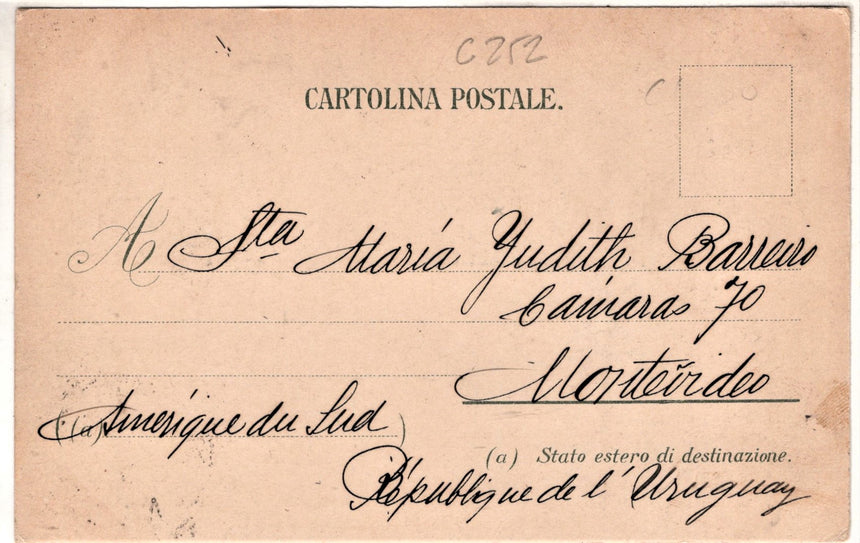 C252
CARTOLINA POSTALE.
A Sta María Yudith Barreiro
Cámaras 70
Montevideo
(a) Amérique du Sud)
(a) Stato estero di destinazione.
République de l' Uruguay